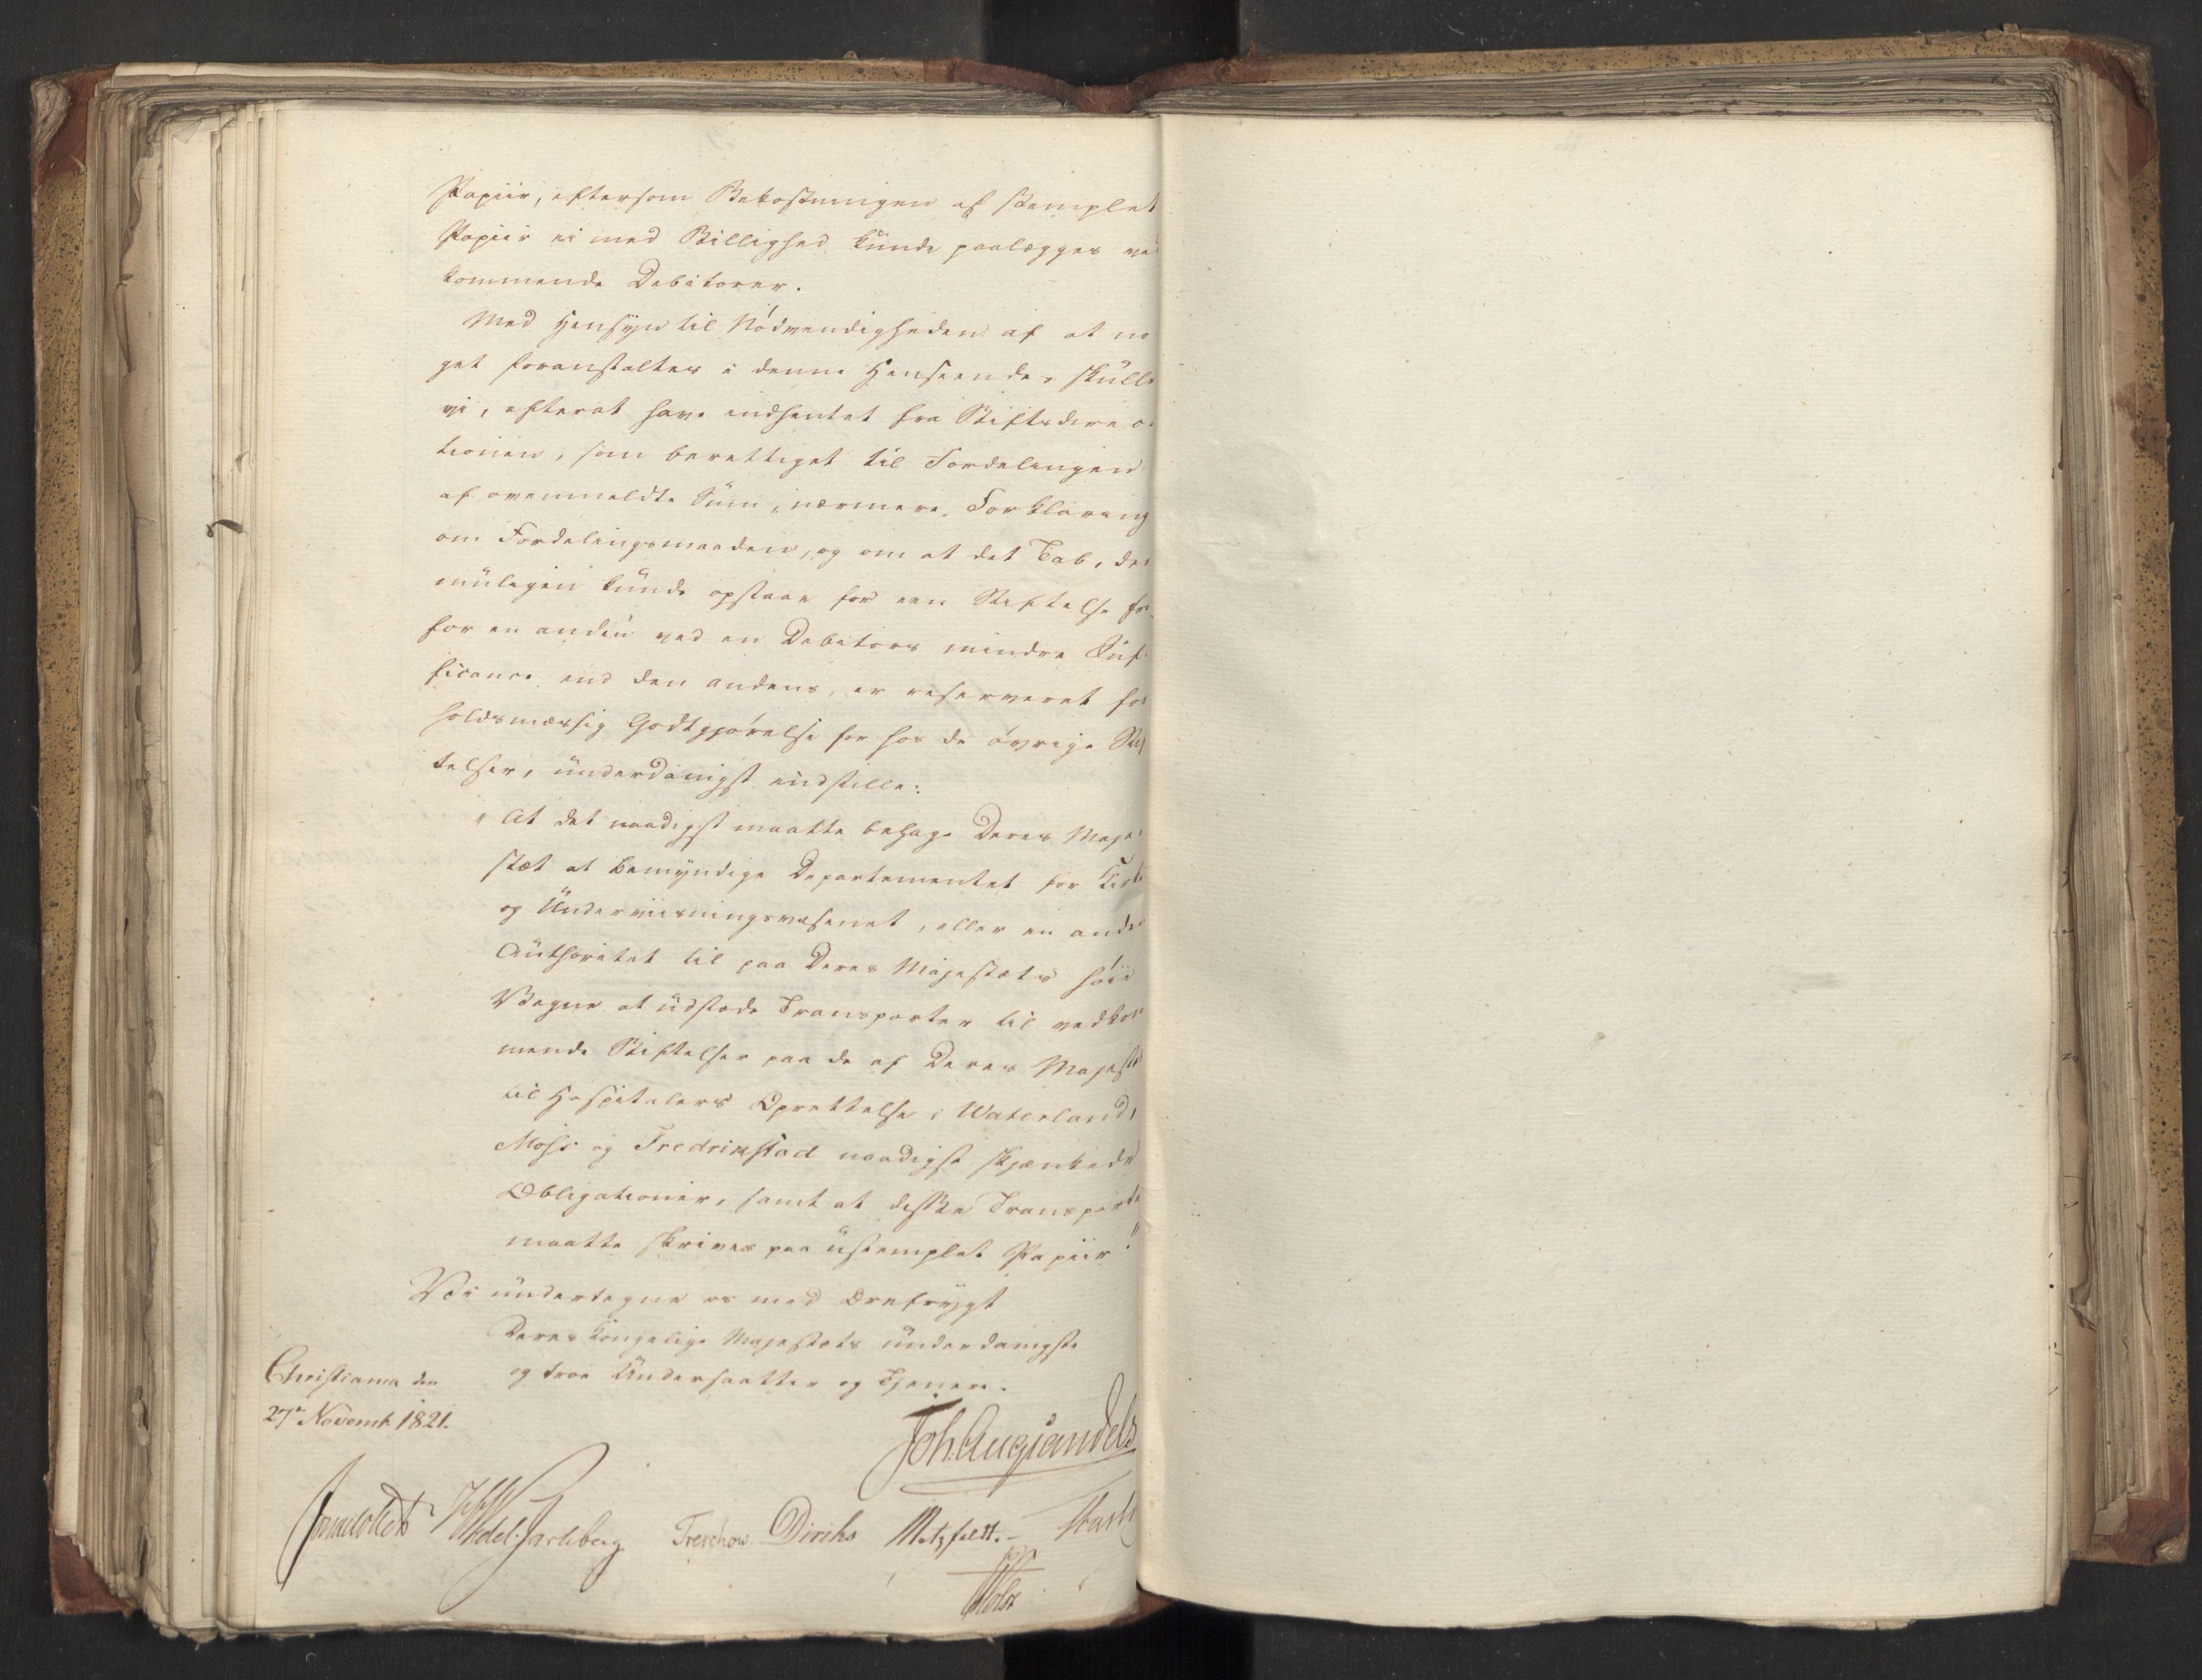 Papiir, eftersom Bekostningen af stemplet
Papiir ei med Billighed kunde paalægges ved
kommende Debitorer.
Med Hensyn til Nödvendigheden af at no
get foranstaltes i denne Henseende, skulle
vi, efterat have indhentet fra Stiftsdirec
tionen, som berettiget til Fordelingen
af ovenmeldte Sum, nærmere Forklaring
om Fordelingsmaaden, og om at det Tab, der
muligen kunde opstaae for een Stiftelse frem
for en anden ved en Debitors mindre Suf
ficance end den andens, er reserveret for
holdsmæssig Godtgjörelse for hos de övrige Stif
telser, underdanigst indstille:
"At det naadigst maatte behage Deres Maje
stæt at bemyndige Departementet for Kirke
og Underviisningsvæsenet, eller en anden
Authoritet til paa Deres Majestæts höie
Vegne at udstede Transporter til vedkom
mende Stiftelser paa de af Deres Majestæt
til Hospitalers Oprettelse i Waterland,
Moss og Fredrikstad naadigst skjænkede
Obligationer, samt at disse Transporter
maatte skrives paa ustemplet Papiir."
Vi undertegne os med Ærefrygt
Deres Kongelige Majestæts underdanigste
og troe Undersaatter og Tjenere.
Christiania den
27de Novemb. 1821.
Joh. Aug. Sandels
Sommelfeldt HWedel Jarlsberg Treschow Diriks Motzfeldt. Fasting
Holst